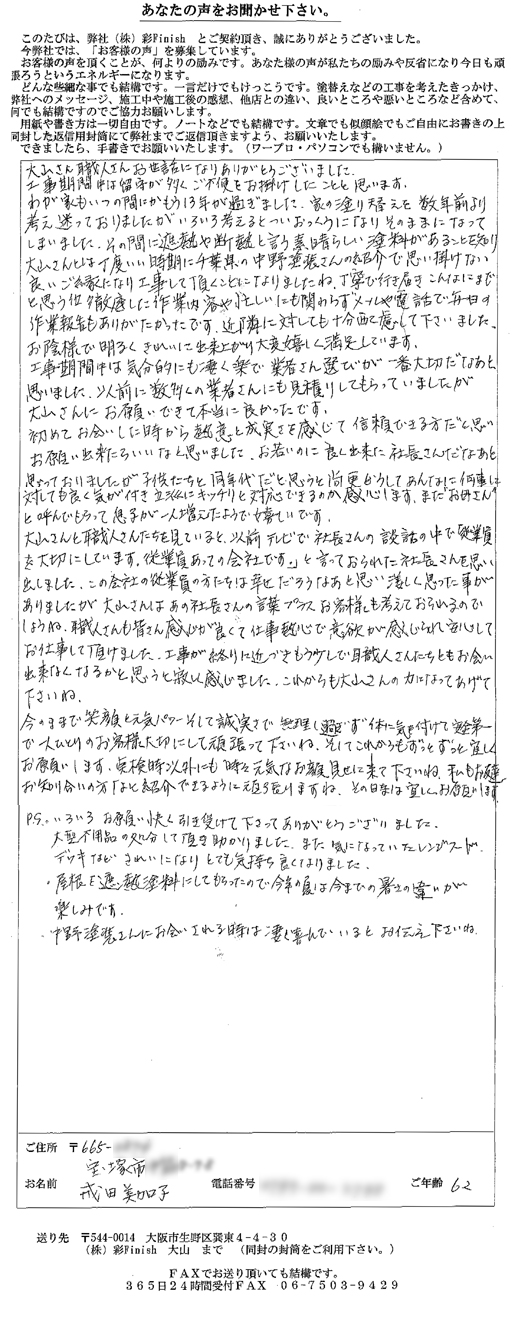 あなたの声をお聞かせ下さい。
このたびは、弊社（株）彩Finish とご契約頂き、誠にありがとうございました。
今弊社では、「お客様の声」を募集しています。
お客様の声を頂くことが、何よりの励みです。あなた様の声が私たちの励みや反省になり今日も頑
張ろうというエネルギーになります。
どんな些細な事でも結構です。一言だけでもけっこうです。塗替えなどの工事を考えたきっかけ、
弊社へのメッセージ、施工中や施工後の感想、他店との違い、良いところや悪いところなど含めて、
何でも結構ですのでご協力お願いします。
用紙や書き方は一切自由です。ノートなどでも結構です。文章でも似顔絵でもご自由にお書きの上
同封した返信用封筒にて弊社までご返信頂きますよう、お願いいたします。
できましたら、手書きでお願いいたします。（ワープロ・パソコンでも構いません。）
大山さん職人さんお世話になりありがとうございました。
工事期間中は留守が多くご不便をお掛けしたことと思います。
わが家もいつの間にかもう13年が過ぎました。家の塗り替えを数年前より
考え迷っておりましたがいろいろ考えるとついおっくうになりそのままになって
しまいました。その間に遮熱や断熱と言う素晴らしい塗料があることを知り
大山さんとは丁度いい時期に千葉県の中野塗装さんの紹介で思い掛けない
良いご縁になり工事して頂くことになりましたね。丁寧で行き届きこんなにまで
と思う位徹底した作業内容や忙しいにも関わらずメールや電話で毎日の
作業報告もありがたかったです。近隣に対しても十分配慮して下さいました。
お陰様で明るくきれいに出来上がり大変嬉しく満足しています。
工事期間中は気分的にも凄く楽で業者さん選びが一番大切だなあと
思いました。以前に数多くの業者さんにも見積りしてもらっていましたが
大山さんにお願いできて本当に良かったです。
初めてお会いした時から熱意と誠実さを感じて信頼できる方だと思い
お願い出来たらいいなと思いました。お若いのに良く出来た社長さんだなあと
思っておりましたが子供たちと同年代だと思うと尚更どうしてあんなに何事に
対しても良く気が付き立派にキッチリと対応できるのか感心します。また"お母さん"
と呼んでもらって息子が一人増えたようで嬉しいです。
大山さんと職人さんたちを見ていると、以前テレビで社長さんの談話の中で「従業員
を大切にしています。従業員あっての会社です。」と言っておられた社長さんを思い
出しました。この会社の従業員の方たちは幸せだろうなあと思い羨しく思った事が
ありましたが大山さんはあの社長さんの言葉プラスお客様も考えておられるので
しょうね。職人さんも皆さん感じが良くて仕事熱心で意欲が感じられ安心して
お仕事して頂けました。工事が終りに近づきもう少しで職人さんたちともお会い
出来なくなるかと思うと寂しく感じました。これからも大山さんの力になってあげて
下さいね。
今のままで笑顔と元気パワーそして誠実さで無理し過ぎず体に気を付けて安全第一
で一人ひとりのお客様大切にして頑張って下さいね。そしてこれからもずっとずっと宜しく
お願いします。点検時以外にも時々元気なお顔見せに来て下さいね。私もお友達
お知り合いの方などと紹介できるように頑張りますね。その時は宜しくお願いします。
P.S. ・いろいろお願い快く引き受けて下さってありがとうございました。
大型不用品の処分して頂き助かりました。また気になっていたレンジフード、
デッキなどきれいになりとても気持ち良くなりました。
・屋根を遮熱塗料にしてもらったので今年の夏は今までの暑さの違いが
楽しみです。
・中野塗装さんにお会いされる時は凄く喜んでいるとお伝え下さいね。
ご住所 〒665-
宝塚市
お名前 戎田美加子 電話番号 ご年齢 62
送り先 〒544-0014 大阪市生野区巽東4-4-30
（株）彩Finish 大山 まで （同封の封筒をご利用下さい。）
FAXでお送り頂いても結構です。
365日24時間受付FAX 06-7503-9429